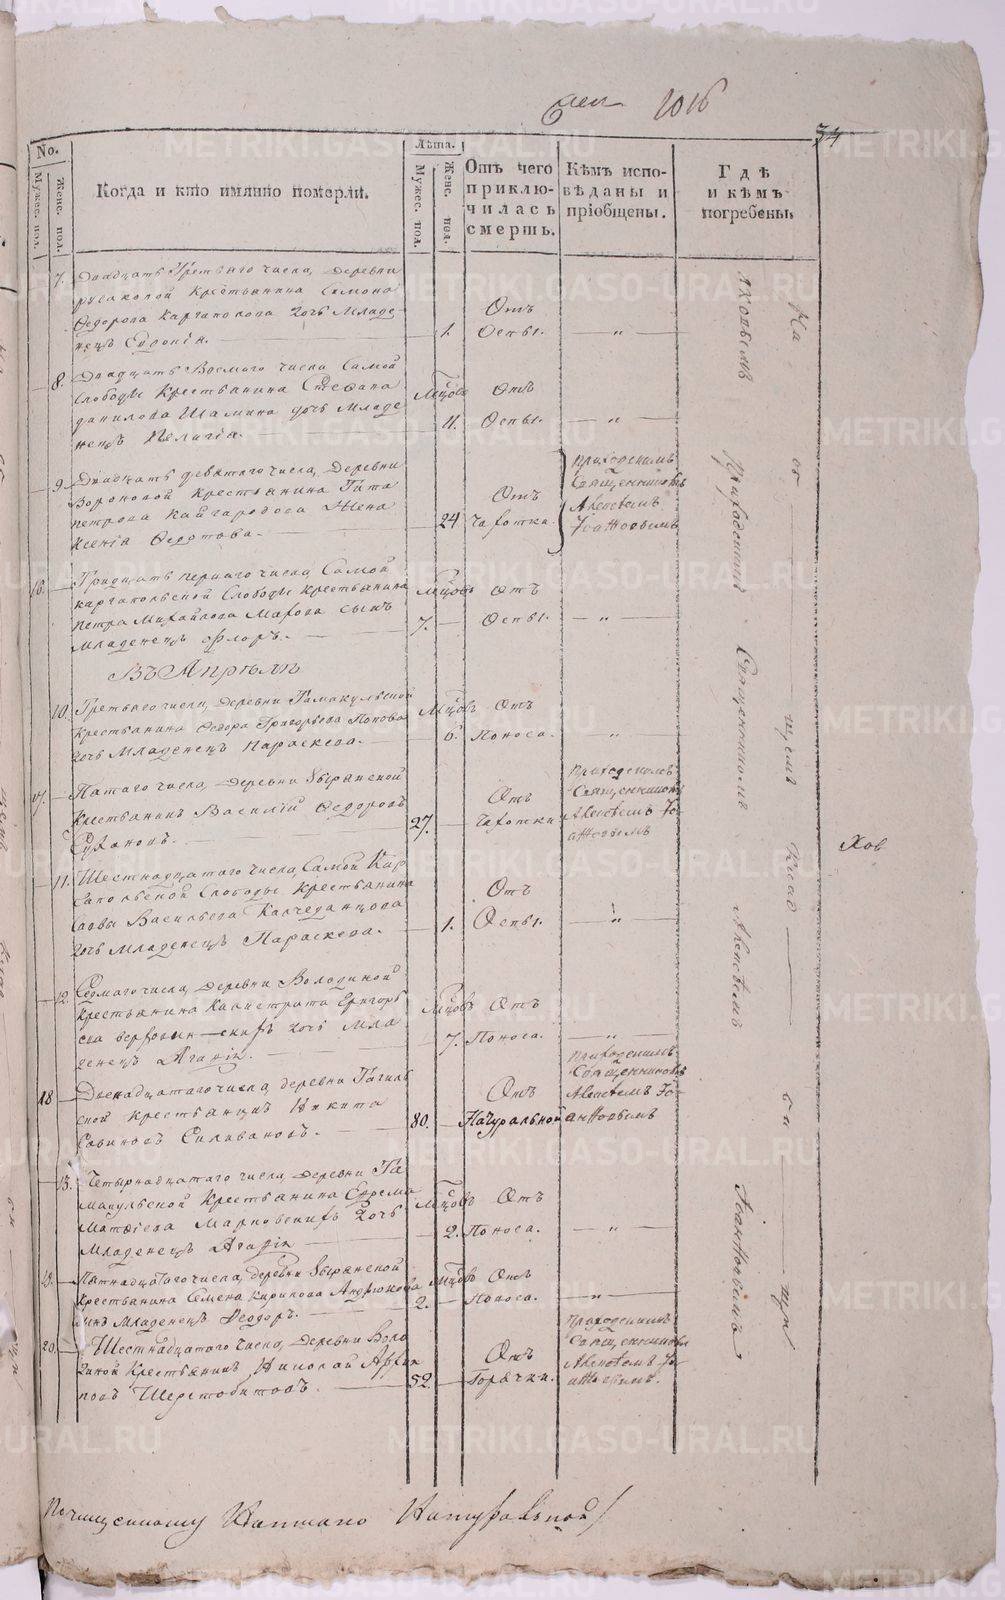 1016
34
No.
Мужес. пол.
Женс. пол.
Когда и кто имянно померли.
Лѣта.
Мужес. пол.
Женс. пол.
Отъ чего приклю-
чилась смерть.
Кѣмъ испо-
вѣданы и
пріобщены.
Гдѣ
и кѣмъ
погребены.
7. Двадцать третьяго числа, деревни
русаковой крестьянина Симона
Ѳедорова Каргаполова дочь младе
нецъ Евдокія. 1. Отъ Оспы. — „ —
8. Двадцать Восмаго числа Самой
Слободы крестьянина Стефана
данилова Шамина дочь младе
нецъ Пелагія. Мѣцовъ 11. Отъ Оспы. — „ —
9. Двадцать девятаго числа, деревни
Вороновой крестьянина Тита
петрова Кайгародова жена
Ксенія Ѳедотова. 24 Отъ Чахотки.
приходскимъ
Священникомъ
Алексѣемъ
Іоанновымъ
16. Тридцать перваго числа Самой
каргапольской Слободы крестьянина
петра Михайлова сынъ
младенецъ Флоръ. Мѣцовъ 7. Отъ Оспы. — „ —
Въ Апрѣлѣ
10. Третьяго числа, деревни Тамакульской
крестьянина Ѳедора Григорьева Попова
дочь младенецъ Параскева. Мѣцовъ 6. Отъ Поноса. — „ —
17. Пятаго числа, деревни Зырянской
крестьянинъ Василій Ѳедоровъ
Сухановъ. 27. Отъ Чахотки
приходскимъ
Священникомъ
Алексѣемъ Іо-
анновымъ
11. Шестнадцатаго числа, Самой Кар
гапольской Слободы крестьянина
Савы Васильева Калчеданцова
дочь младенецъ Параскева. 1. Отъ Оспы. — „ —
12. Седмаго числа, деревни Володиной
крестьянина Калистрата Григорь
ева дочь мла
денецъ Агафія. Мѣцовъ 7. Отъ Поноса. — „ —
18 Двенадцатаго числа, деревни Тагиль
ской крестьянинъ Никита
Савиновъ Селивановъ. 80. Отъ Натуральной
приходскимъ
Священникомъ
Алексѣемъ Іо-
анновымъ
13. Четырнадцатаго числа, деревни Та
макульской крестьянина Ефрема
Матѳеева дочь
младенецъ Агафія Мѣцовъ 2. Отъ Поноса. — „ —
19. Пятнадцатаго числа, деревни Зырянской
крестьянина Семена Кирилова Андрюкова
сынъ младенецъ Ѳеодоръ. Мѣцовъ 2. Отъ Поноса. — „ —
20. Шестнадцатаго числа, деревни Воло
диной крестьянинъ Николай Архи
повъ Шерстобитовъ. 52. Отъ Горячки.
приходскимъ
Священникомъ
Алексѣемъ Іо-
анновымъ.
На об
щемъ клад
би щѣ
приходскимъ Священникомъ Алексѣемъ Іоанновымъ
METRIKI.GASO-URAL.RU